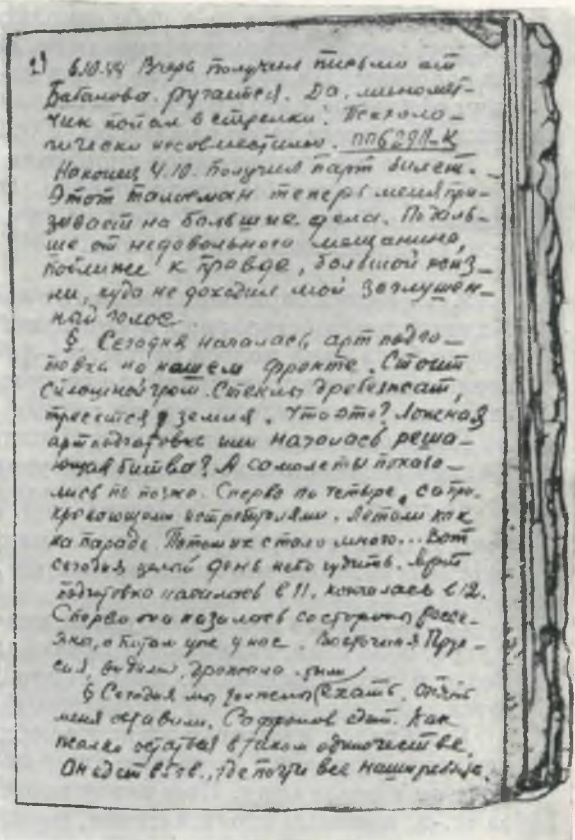 6.10.44 Вчера получил письмо от
Бабанова. Ругается. Да, миномет-
чик попал в стрелки. Психоло-
гически несовместимо.
Наконец 4.10. получил парт билет.
Этот талисман теперь меня при-
зывает на большие дела. Подаль-
ше от недовольного мещанина,
поближе к правде, большой жиз-
ни, куда не доходил мой заглушен-
ный голос.
§ Сегодня началась арт подго-
товка на нашем фронте. Стоит
сплошной гром. Стекла дребезжат,
трясется земля. Что это? Ложная
артподготовка или началась реша-
ющая битва? А самолеты показа-
лись по позже. Сперва по четыре, с
истребителями. Летали как
на параде. Потом их стало много... Вот
сегодня целый день небо гудит. Арт
подготовка началась в 11. кончилась в 12.
Сперва она началась со стороны
а потом уже у нас. Восточная Прус-
сия, видели, дрожала.
§ Сегодня мы должны ехать. Опять
меня оставили. Сафронов едет. Как
жалко остаться в таком одиночестве.
Он едет в где почти все наши ребята.